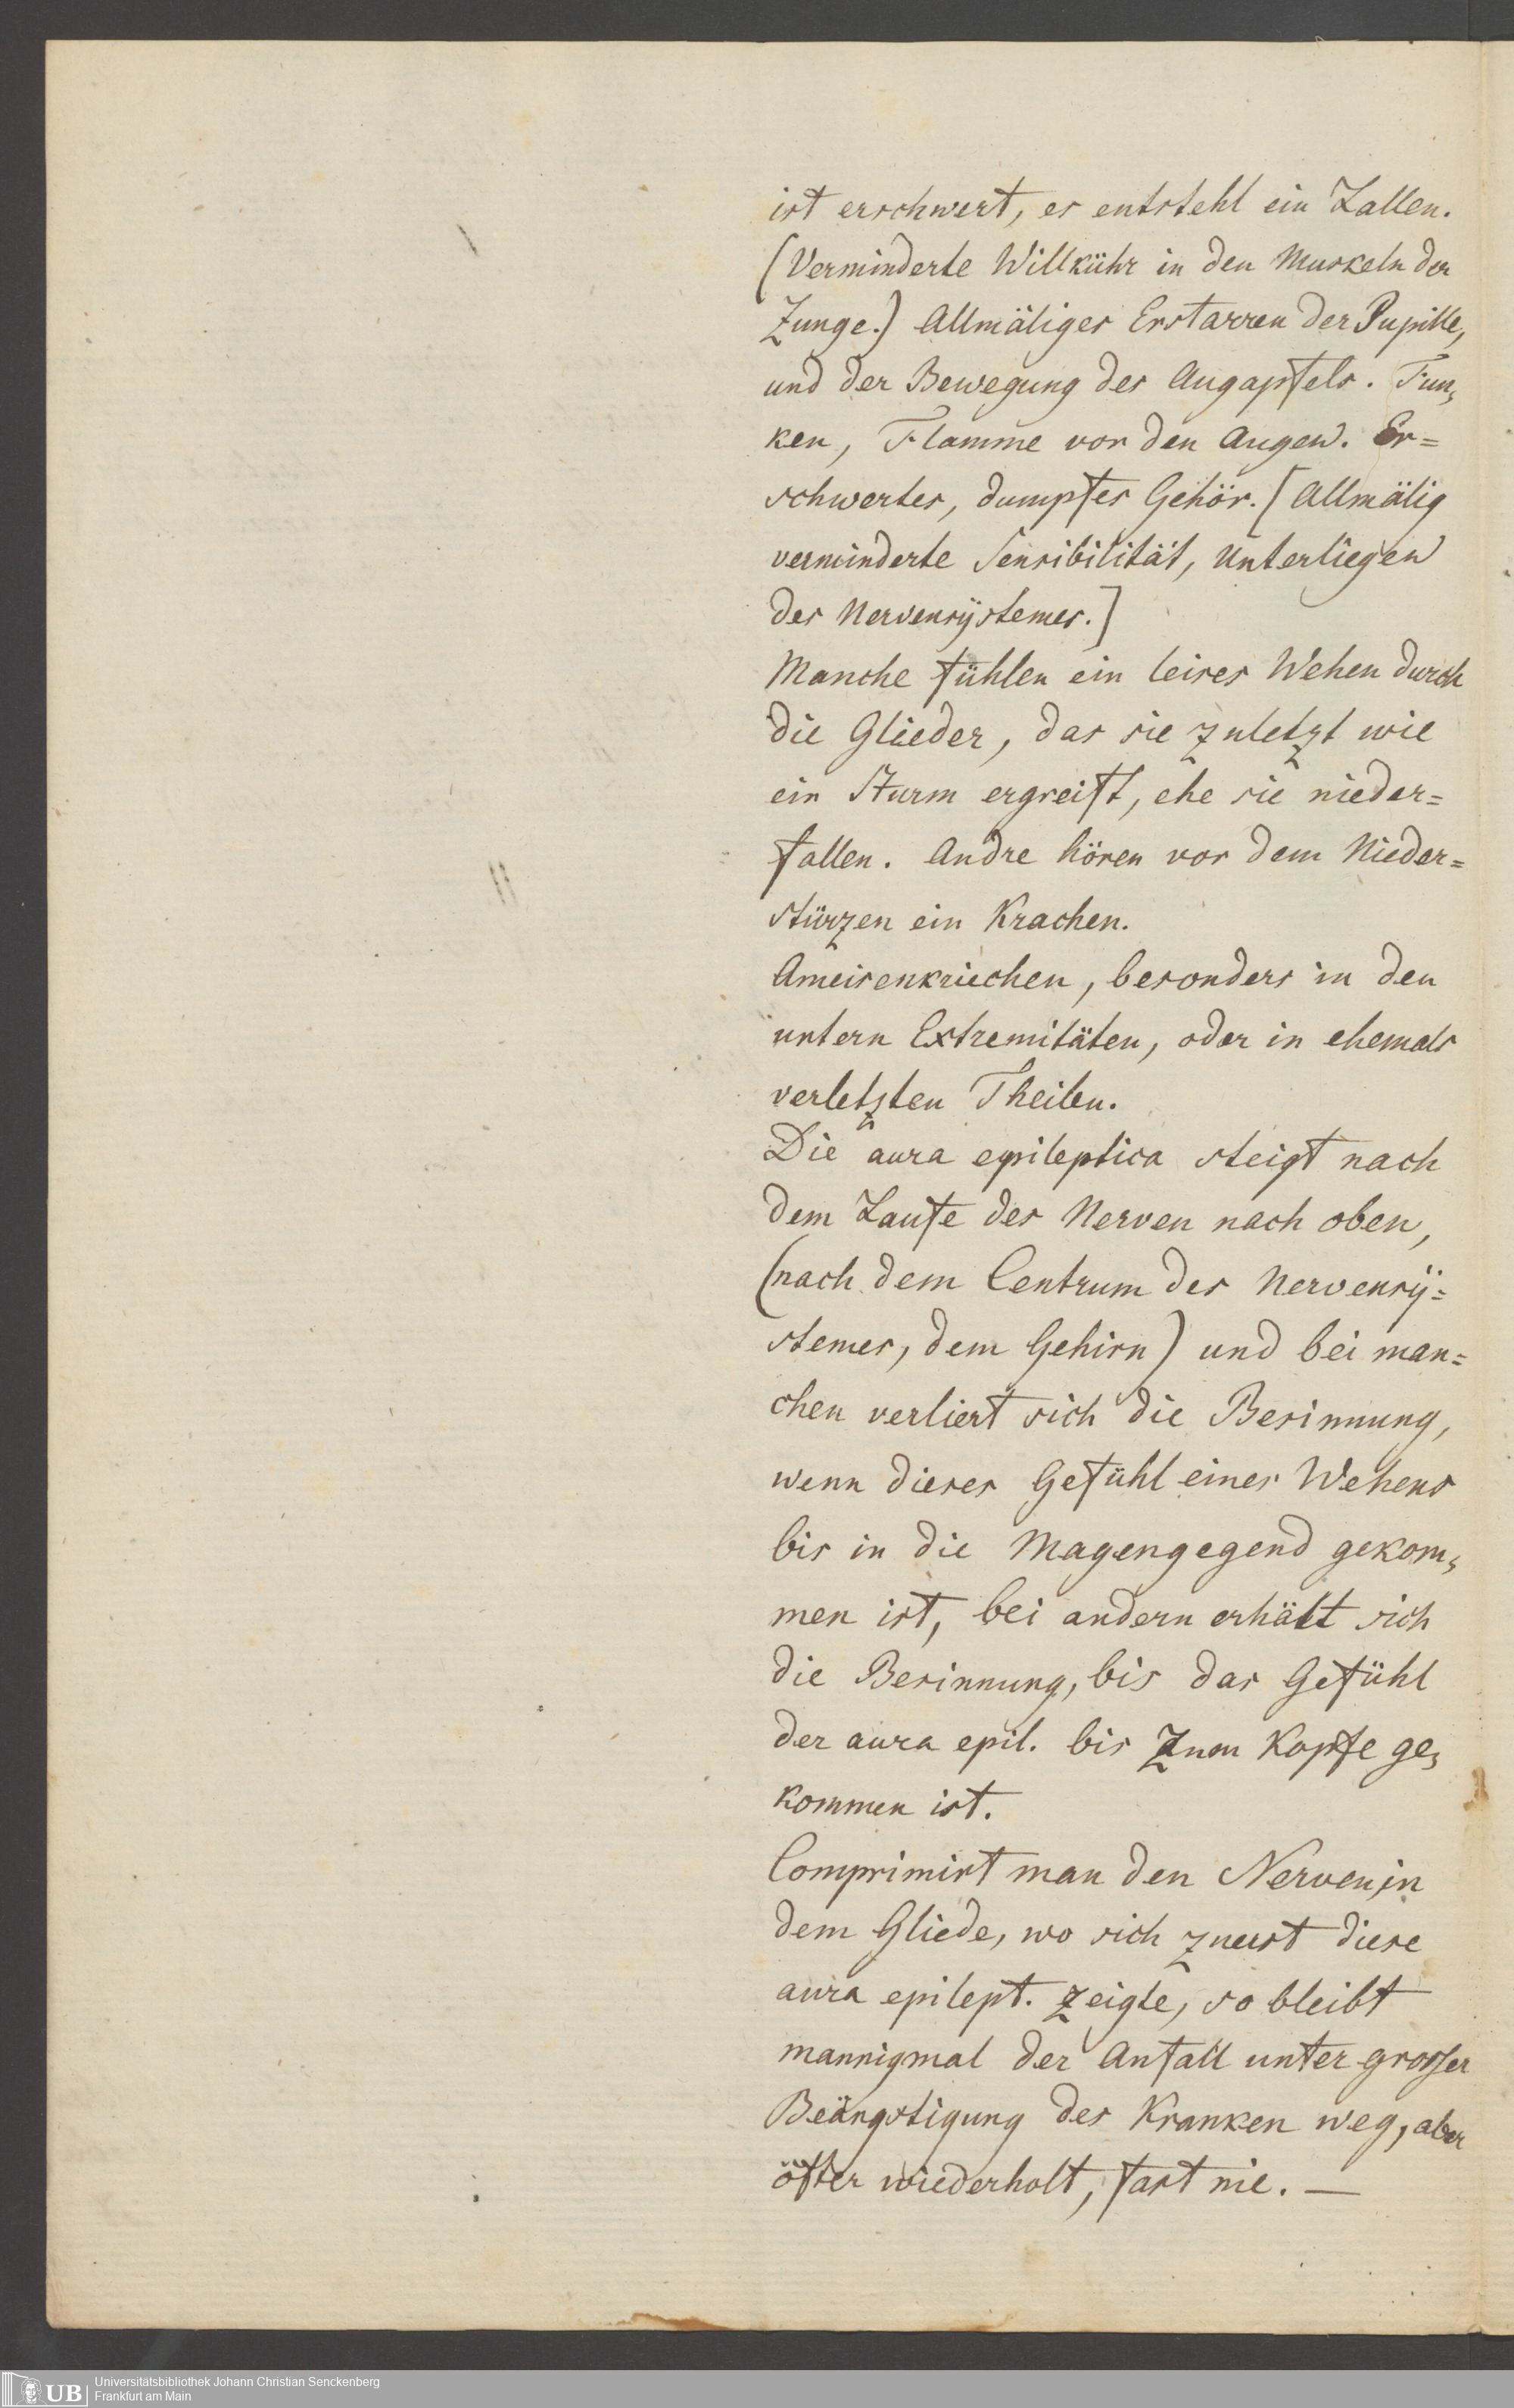 ist erschwert, es entsteht ein Lallen.
(Verminderte Willkühr in den Muskeln der
Zunge.) Allmäliges Erstarren der Pupille,
und der Bewegung des Augapfels. Fun„
ken, Flamme vor den Augen. Er=
schwertes, dumpfes Gehör. [Allmälig
verminderte Sensibilität, Unterliegen
des Nervensÿstemes.]
Manche fühlen ein leises Wehen durch
die Glieder, das sie zuletzt wie
ein Sturm ergreift, ehe sie nieder=
fallen. Andre hören vor dem Nieder=
stürzen ein Krachen.
Ameisenkriechen, besonders in den
untern Extremitäten, oder in ehemals
verletzten Theilen.
Die aura epileptica steigt nach
dem Laufe des Nerven nach oben,
(nach dem Centrum des Nervensÿ=
stemes, dem Gehirn) und bei man=
chen verliert sich die Besinnung,
wenn dieses Gefühl eines Wehens
bis in die Magengegend gekom„
men ist, bei andern erhält sich
die Besinnung, bis das Gefühl
der aura epil. bis zum Kopfe ge„
kommen ist.
Comprimirt man den Nerven, in
dem Gliede, wo sich zuerst diese
aura epilept. zeigte, so bleibt
mannigmal der Anfall unter grosser
Beängstigung des Kranken weg, aber
öfter wiederholt, fast nie. —
UB
Universitätsbibliothek Johann Christian Senckenberg
Frankfurt am Main